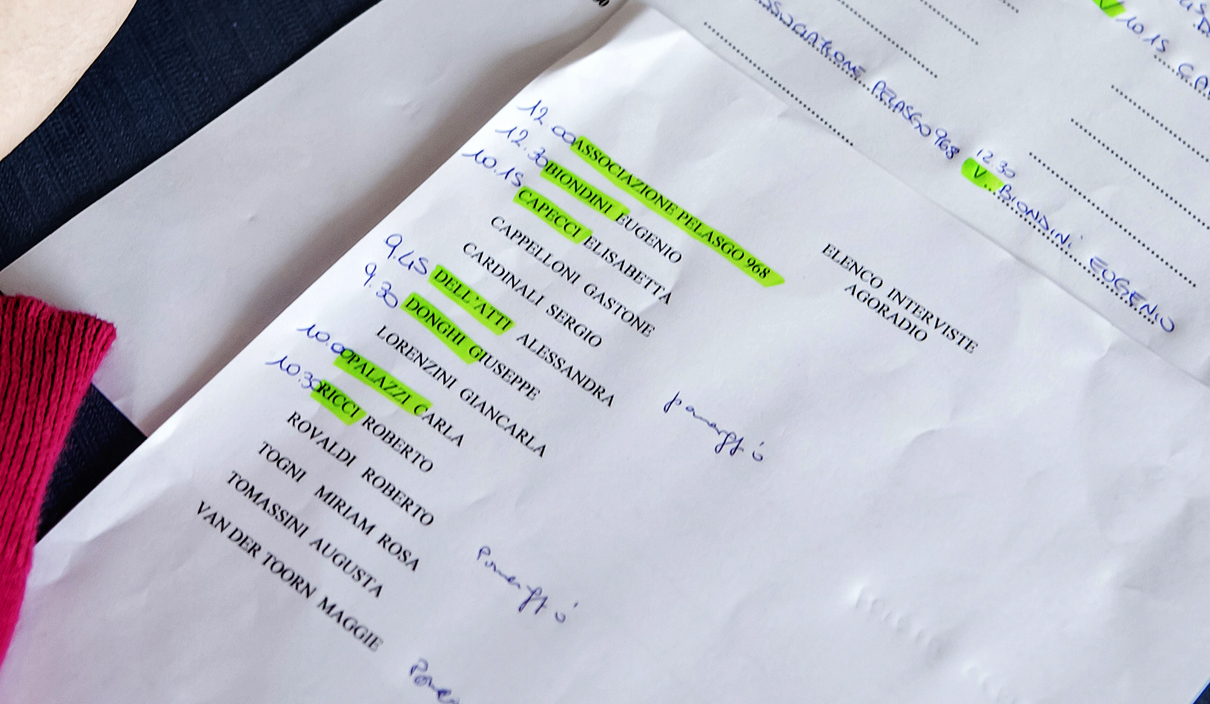 ELENCO INTERVISTE
AGORADIO
12.00 ASSOCIAZIONE PELASGO 968
12.30 BIONDINI EUGENIO
10.15 CAPECCI ELISABETTA
CAPPELLONI GASTONE
CARDINALI SERGIO
9.45 DELL'ATTI ALESSANDRA
9.30 DONGHI GIUSEPPE
LORENZINI GIANCARLA
10.00 PALAZZI CARLA
10.30 RICCI ROBERTO
ROVALDI ROBERTO
TOGNI MIRIAM ROSA
TOMASSINI AUGUSTA
VAN DER TOORN MAGGIE
PELASGO 968
12.30
V. BIONDINI EUGENIO
V 10.15